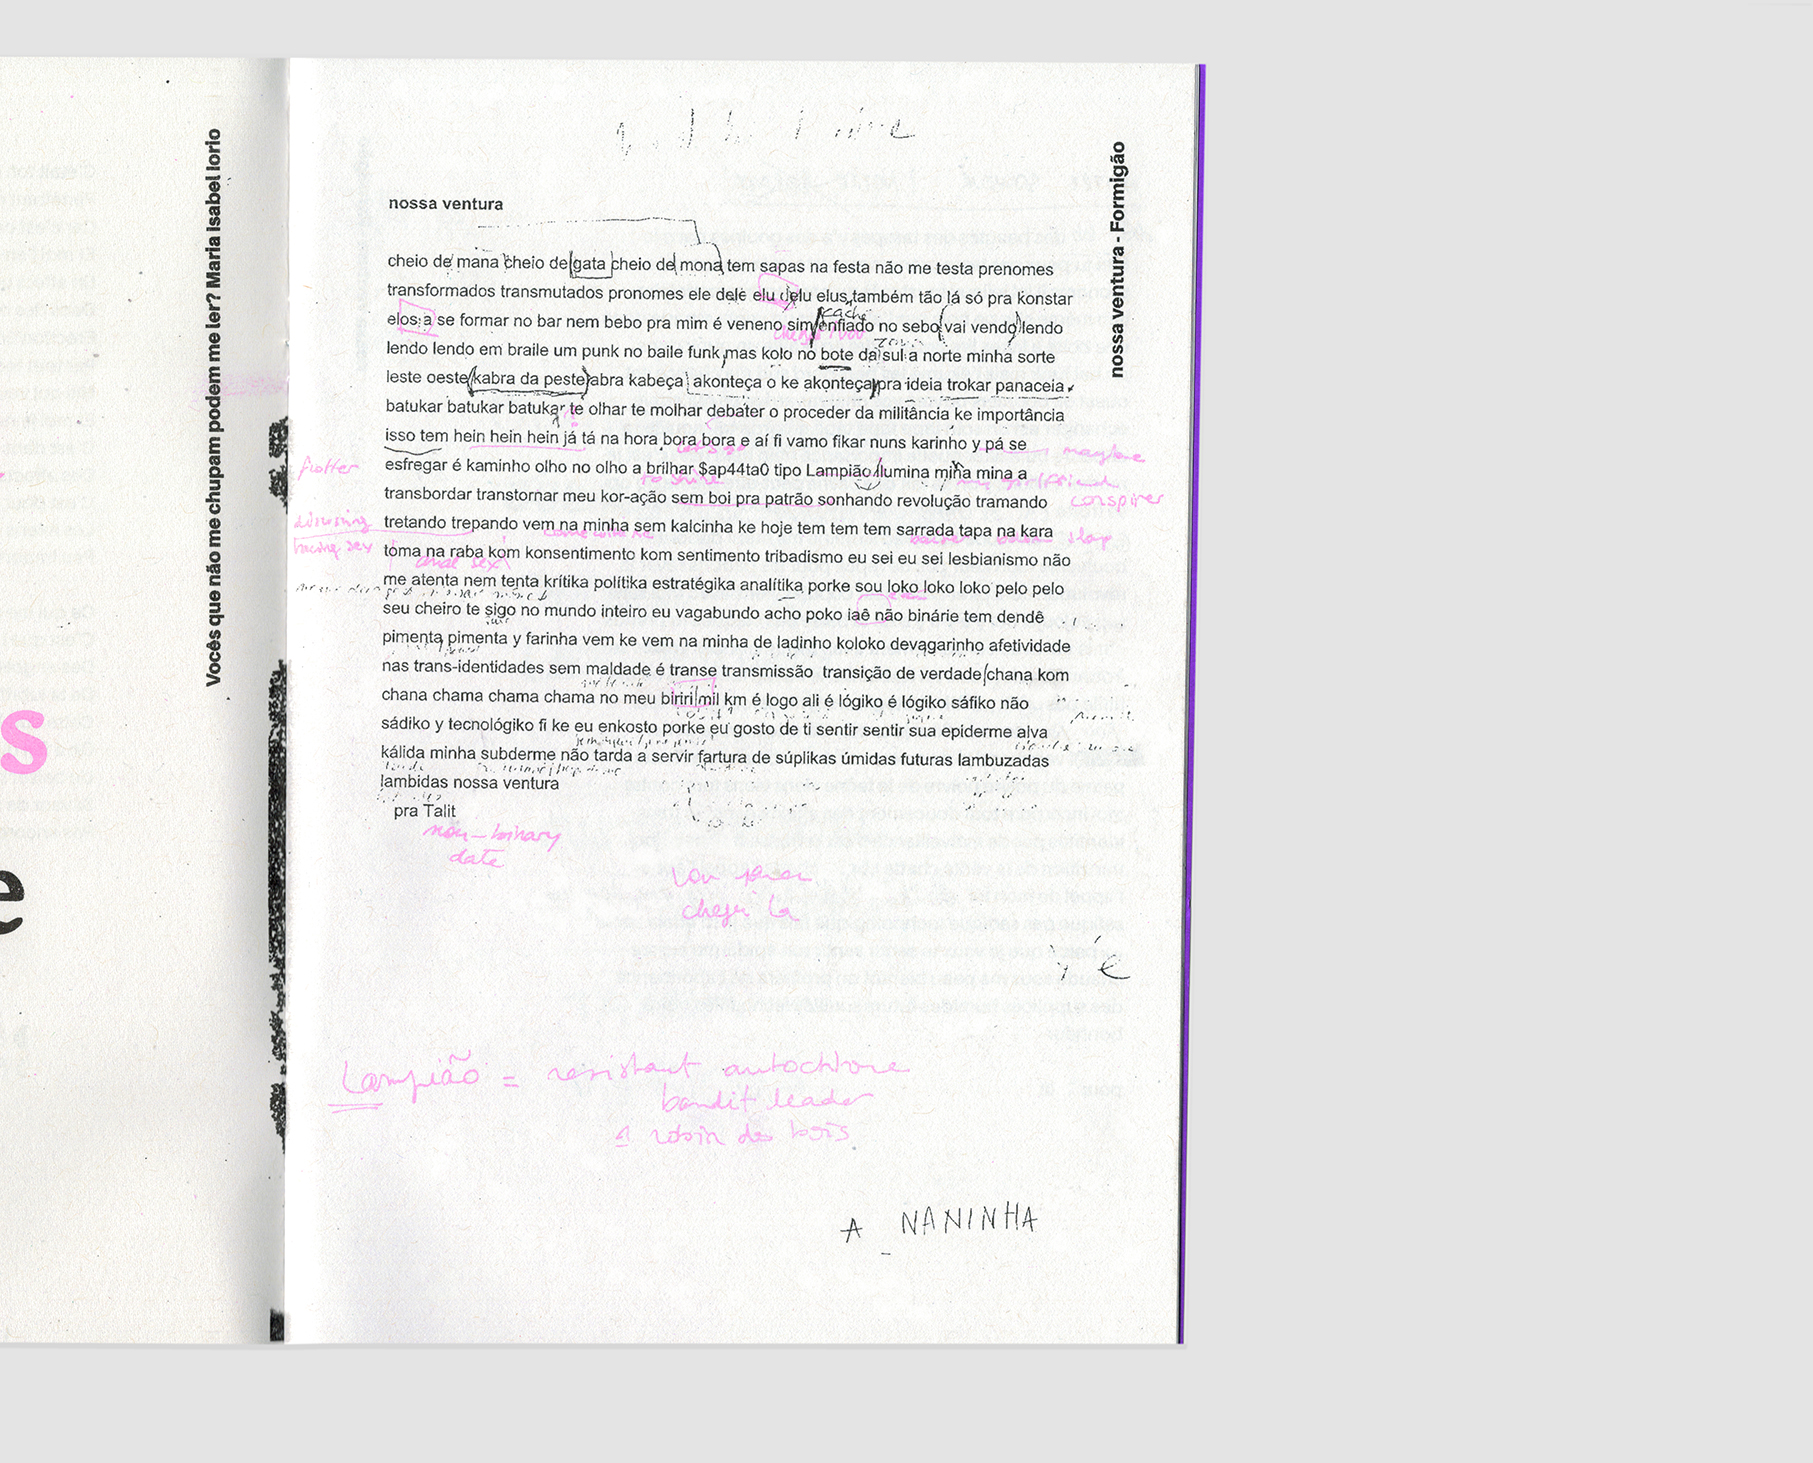 Vocês que não me chupam podem me ler? Maria Isabel Iorio
s
e
nossa ventura - Formigão
nossa ventura
cheio de mana cheio de gata cheio de mona tem sapas na festa não me testa prenomes
transformados transmutados pronomes ele dele elu delu elus também tão lá só pra konstar
elos a se formar no bar nem bebo pra mim é veneno sim enfiado no sebo vai vendo lendo
caché
lendo lendo em braile um punk no baile funk mas kolo no bote da sul a norte minha sorte
zona
leste oeste kabra da peste abra kabeça akonteça o ke akonteça pra ideia trokar panaceia
batukar batukar batukar te olhar te molhar debater o proceder da militância ke importância
isso tem hein hein hein já tá na hora bora bora e aí fi vamo fikar nuns karinho y pá se
let's go
maybe
frotter
esfregar é kaminho olho no olho a brilhar $ap44ta0 tipo Lampião ilumina minha mina a
to shine
my girlfriend
transbordar transtornar meu kor-ação sem boi pra patrão sonhando revolução tramando
conspirer
discussing
tretando trepando vem na minha sem kalcinha ke hoje tem tem tem sarrada tapa na kara
having sex
slap
toma na raba kom konsentimento kom sentimento tribadismo eu sei eu sei lesbianismo não
anal sex
me atenta nem tenta krítika polítika estratégika analítika porke sou loko loko loko pelo pelo
seu cheiro te sigo no mundo inteiro eu vagabundo acho poko iaê não binárie tem dendê
pimenta pimenta y farinha vem ke vem na minha de ladinho koloko devagarinho afetividade
nas trans-identidades sem maldade é transe transmissão transição de verdade chana kom
chana chama chama chama no meu biriri mil km é logo ali é lógiko é lógiko sáfiko não
sádiko y tecnológiko fi ke eu enkosto porke eu gosto de ti sentir sentir sua epiderme alva
kálida minha subderme não tarda a servir fartura de súplikas úmidas futuras lambuzadas
lambidas nossa ventura
pra Talit
non-binary
date
Lampião = resistant autochtone
bandit leader
robin des bois
A_NANINHA